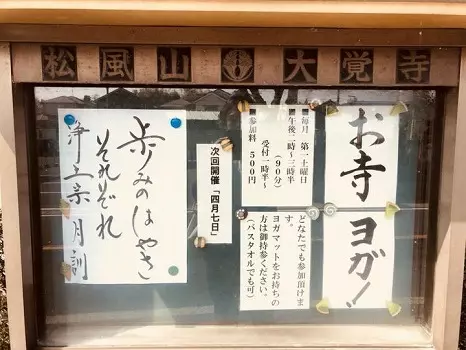 松風山 大覚寺
お寺ヨガ!
■毎月 第一土曜日
■午後二時~三時半
(90分)
受付一時半~
■参加料 500円
どなたでも参加頂けま
す。
ヨガマットをお持ちの
方は御持参ください。
(バスタオルでも可)
次回開催「四月七日」
歩みのはやさ
それぞれ
浄土宗 月訓